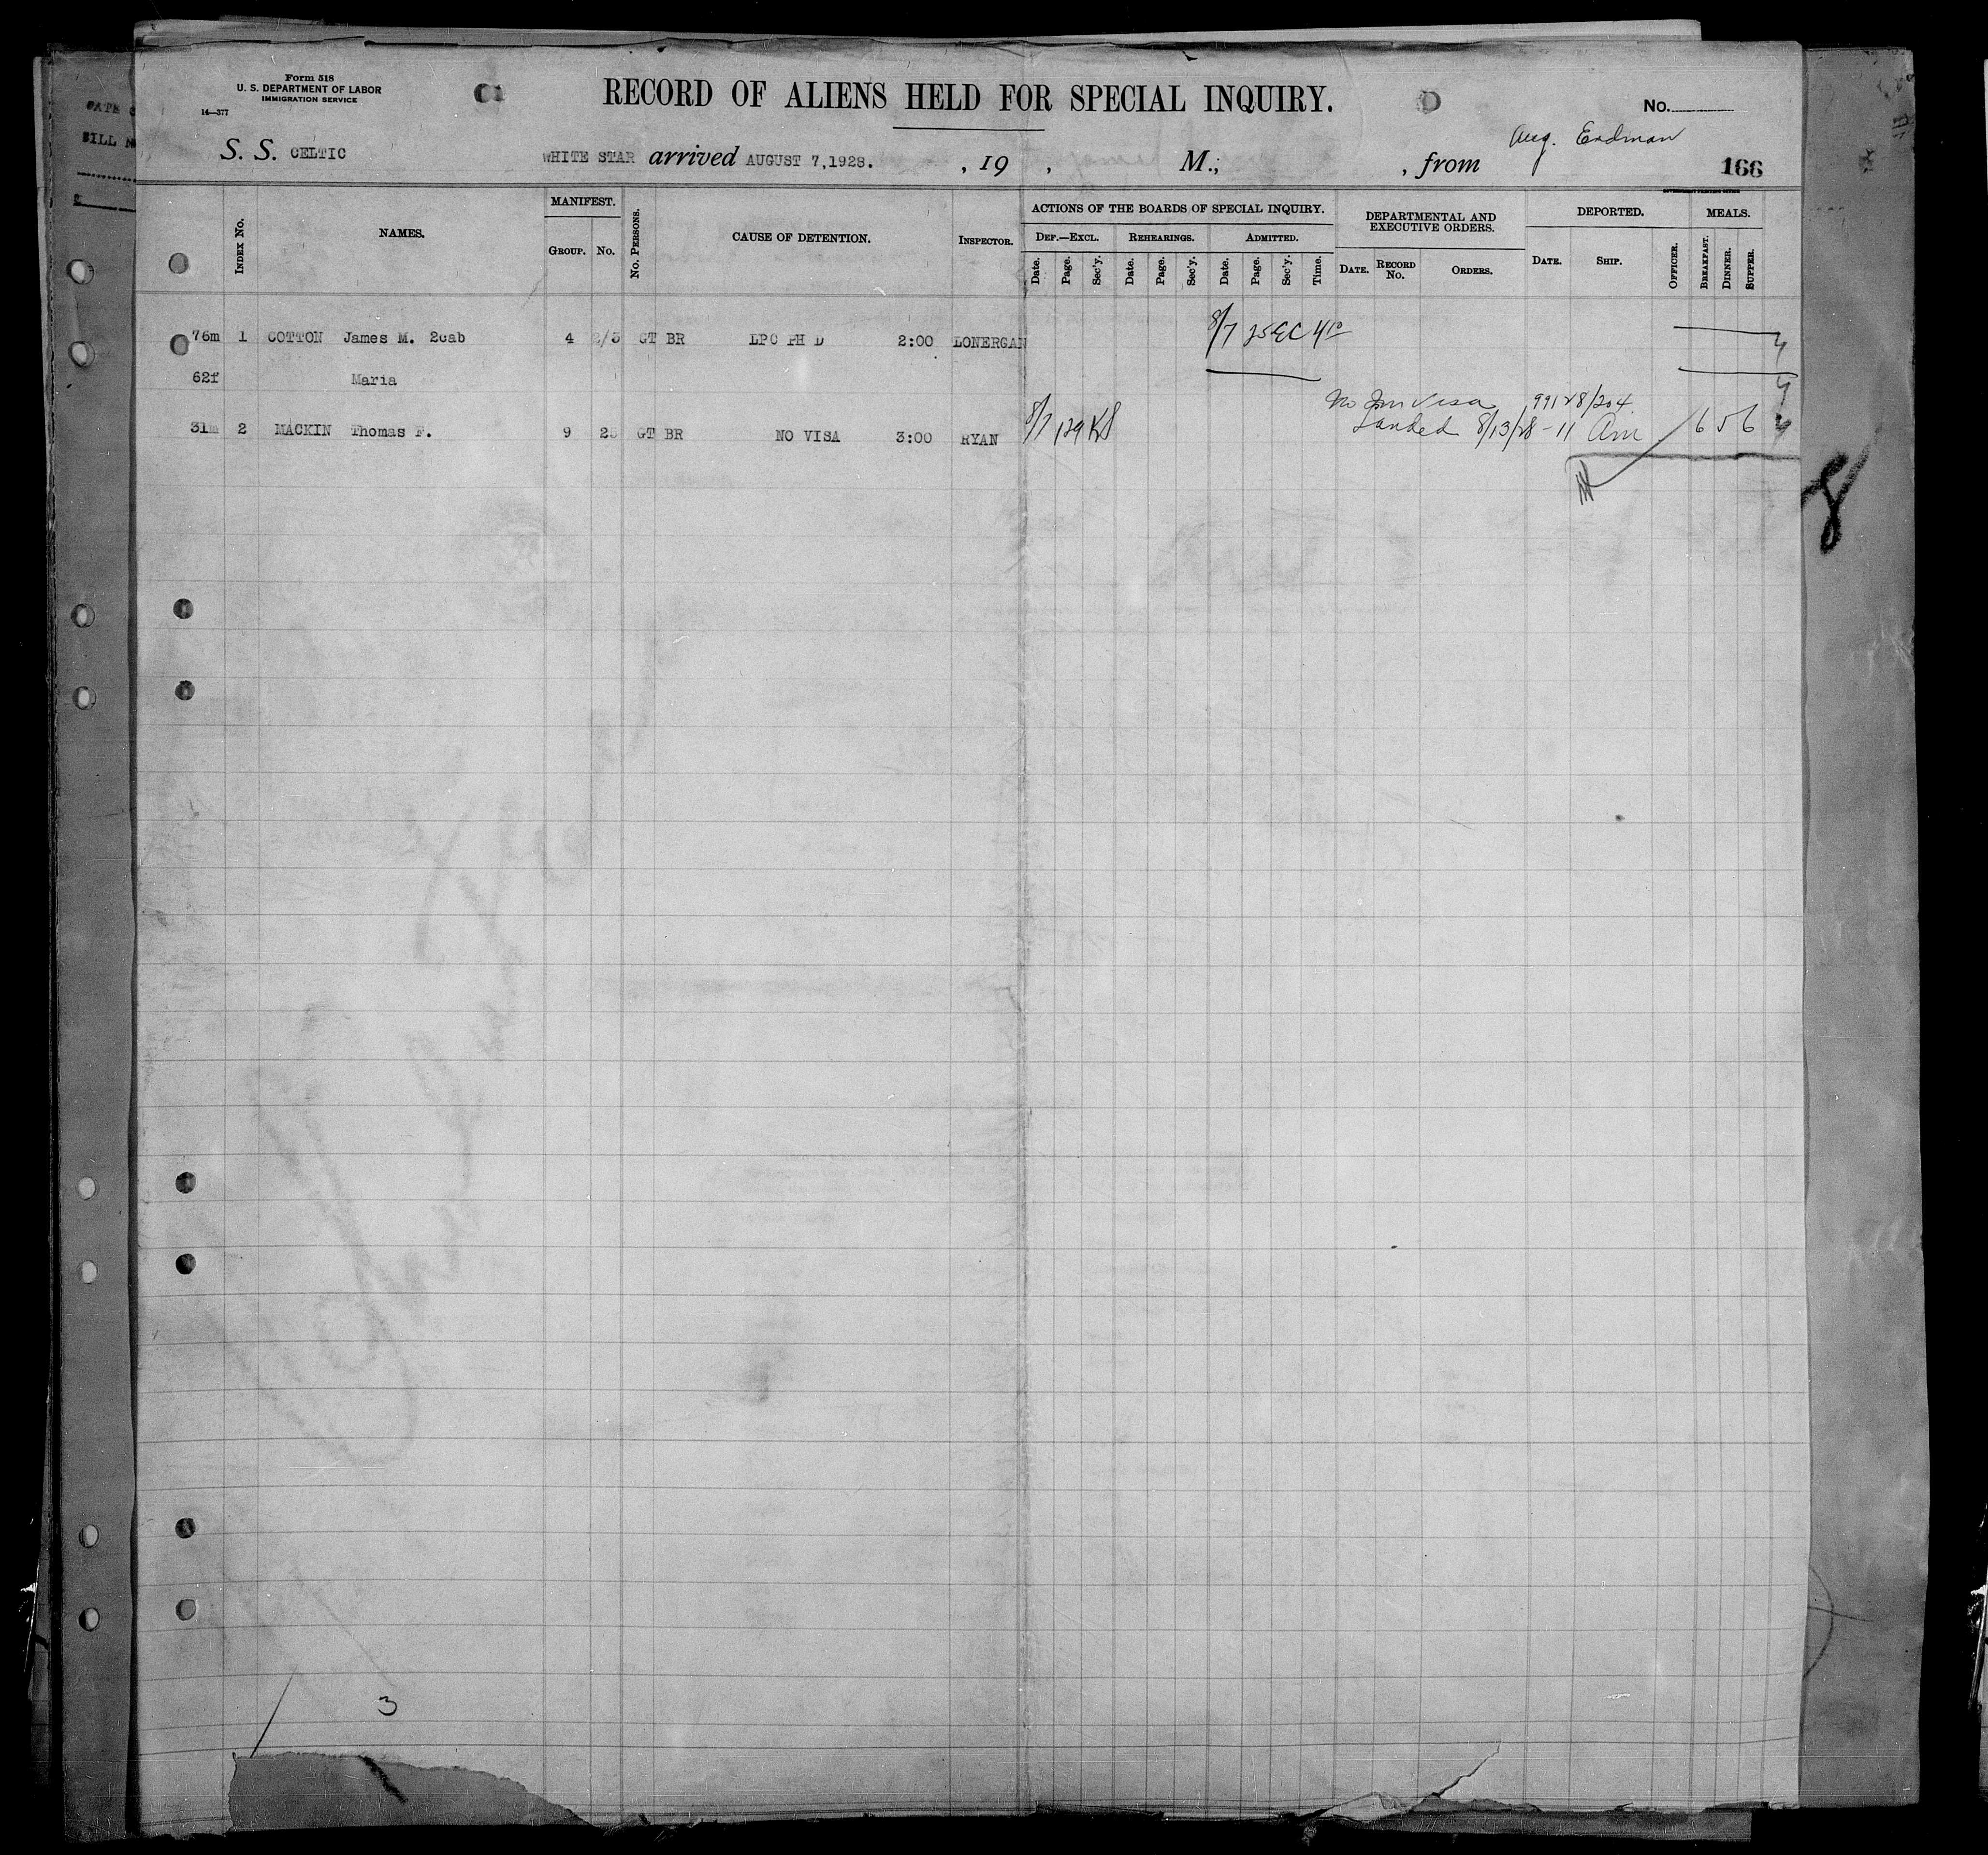 Form 518
U. S. DEPARTMENT OF LABOR
IMMIGRATION SERVICE
14—377
RECORD OF ALIENS HELD FOR SPECIAL INQUIRY.
No.
Aug. Erdman
S. S. CELTIC WHITE STAR arrived AUGUST 7,1928. , 19 , M.; , from 166
GOVERNMENT PRINTING OFFICE
INDEX No. NAMES. MANIFEST. GROUP. No. No. PERSONS. CAUSE OF DETENTION. INSPECTOR.
ACTIONS OF THE BOARDS OF SPECIAL INQUIRY. DEPARTMENTAL AND EXECUTIVE ORDERS. DEPORTED. MEALS.
DEF.—EXCL. REHEARINGS. ADMITTED.
Date. Page. Sec'y. Date. Page. Sec'y. Date. Page. Sec'y. Time. DATE. RECORD No. ORDERS. DATE. SHIP. OFFICER. BREAKFAST. DINNER. SUPPER.
76m 1 COTTON James M. 2cab 4 2/3 GT BR LPC PH D 2:00 LONERGAN 8/7 25 EC 4 10
62f Maria
No Im Visa 99128/204
31m 2 MACKIN Thomas F. 9 25 GT BR NO VISA 3:00 RYAN 8/7 129 KS Landed 8/13/28 - 11 Am 6 5 6
8
3
DATE
BILL